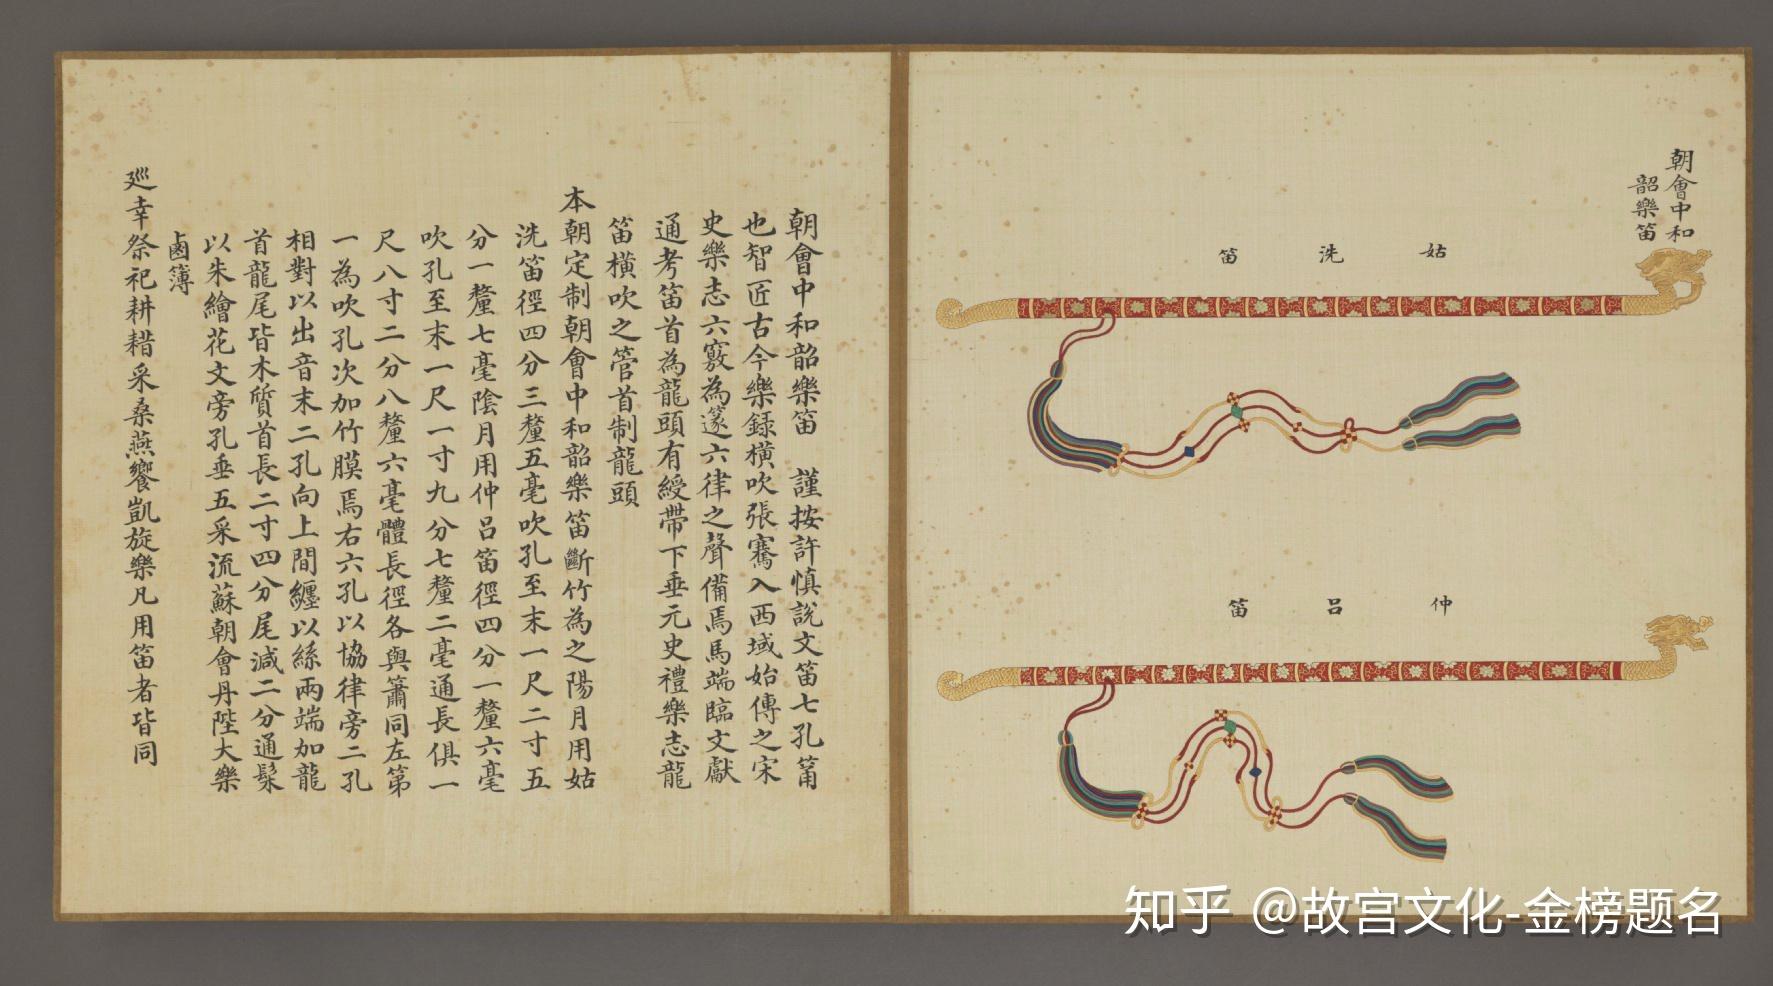 朝會中和
韶樂笛
姑洗笛
仲呂笛
朝會中和韶樂笛　謹按許慎說文笛七孔筩
也智匠古今樂錄橫吹張騫入西域始傳之宋
史樂志六竅為篴六律之聲備焉馬端臨文獻
通考笛首為龍頭有綬帶下垂元史禮樂志龍
笛橫吹之管首制龍頭
本朝定制朝會中和韶樂笛斷竹為之陽月用姑
洗笛徑四分三釐五毫吹孔至末一尺二寸五
分一釐七毫陰月用仲呂笛徑四分一釐六毫
吹孔至末一尺一寸九分七釐二毫通長俱一
尺八寸二分八釐六毫體長徑各與簫同左第
一為吹孔次加竹膜焉右六孔以協律旁二孔
相對以出音末二孔向上間纏以絲兩端加龍
首龍尾皆木質首長二寸四分尾減二分通髹
以朱繪花文旁孔垂五采流蘇朝會丹陛大樂
鹵簿
巡幸祭祀耕耤采桑燕饗凱旋樂凡用笛者皆同
知乎 @故宫文化-金榜题名